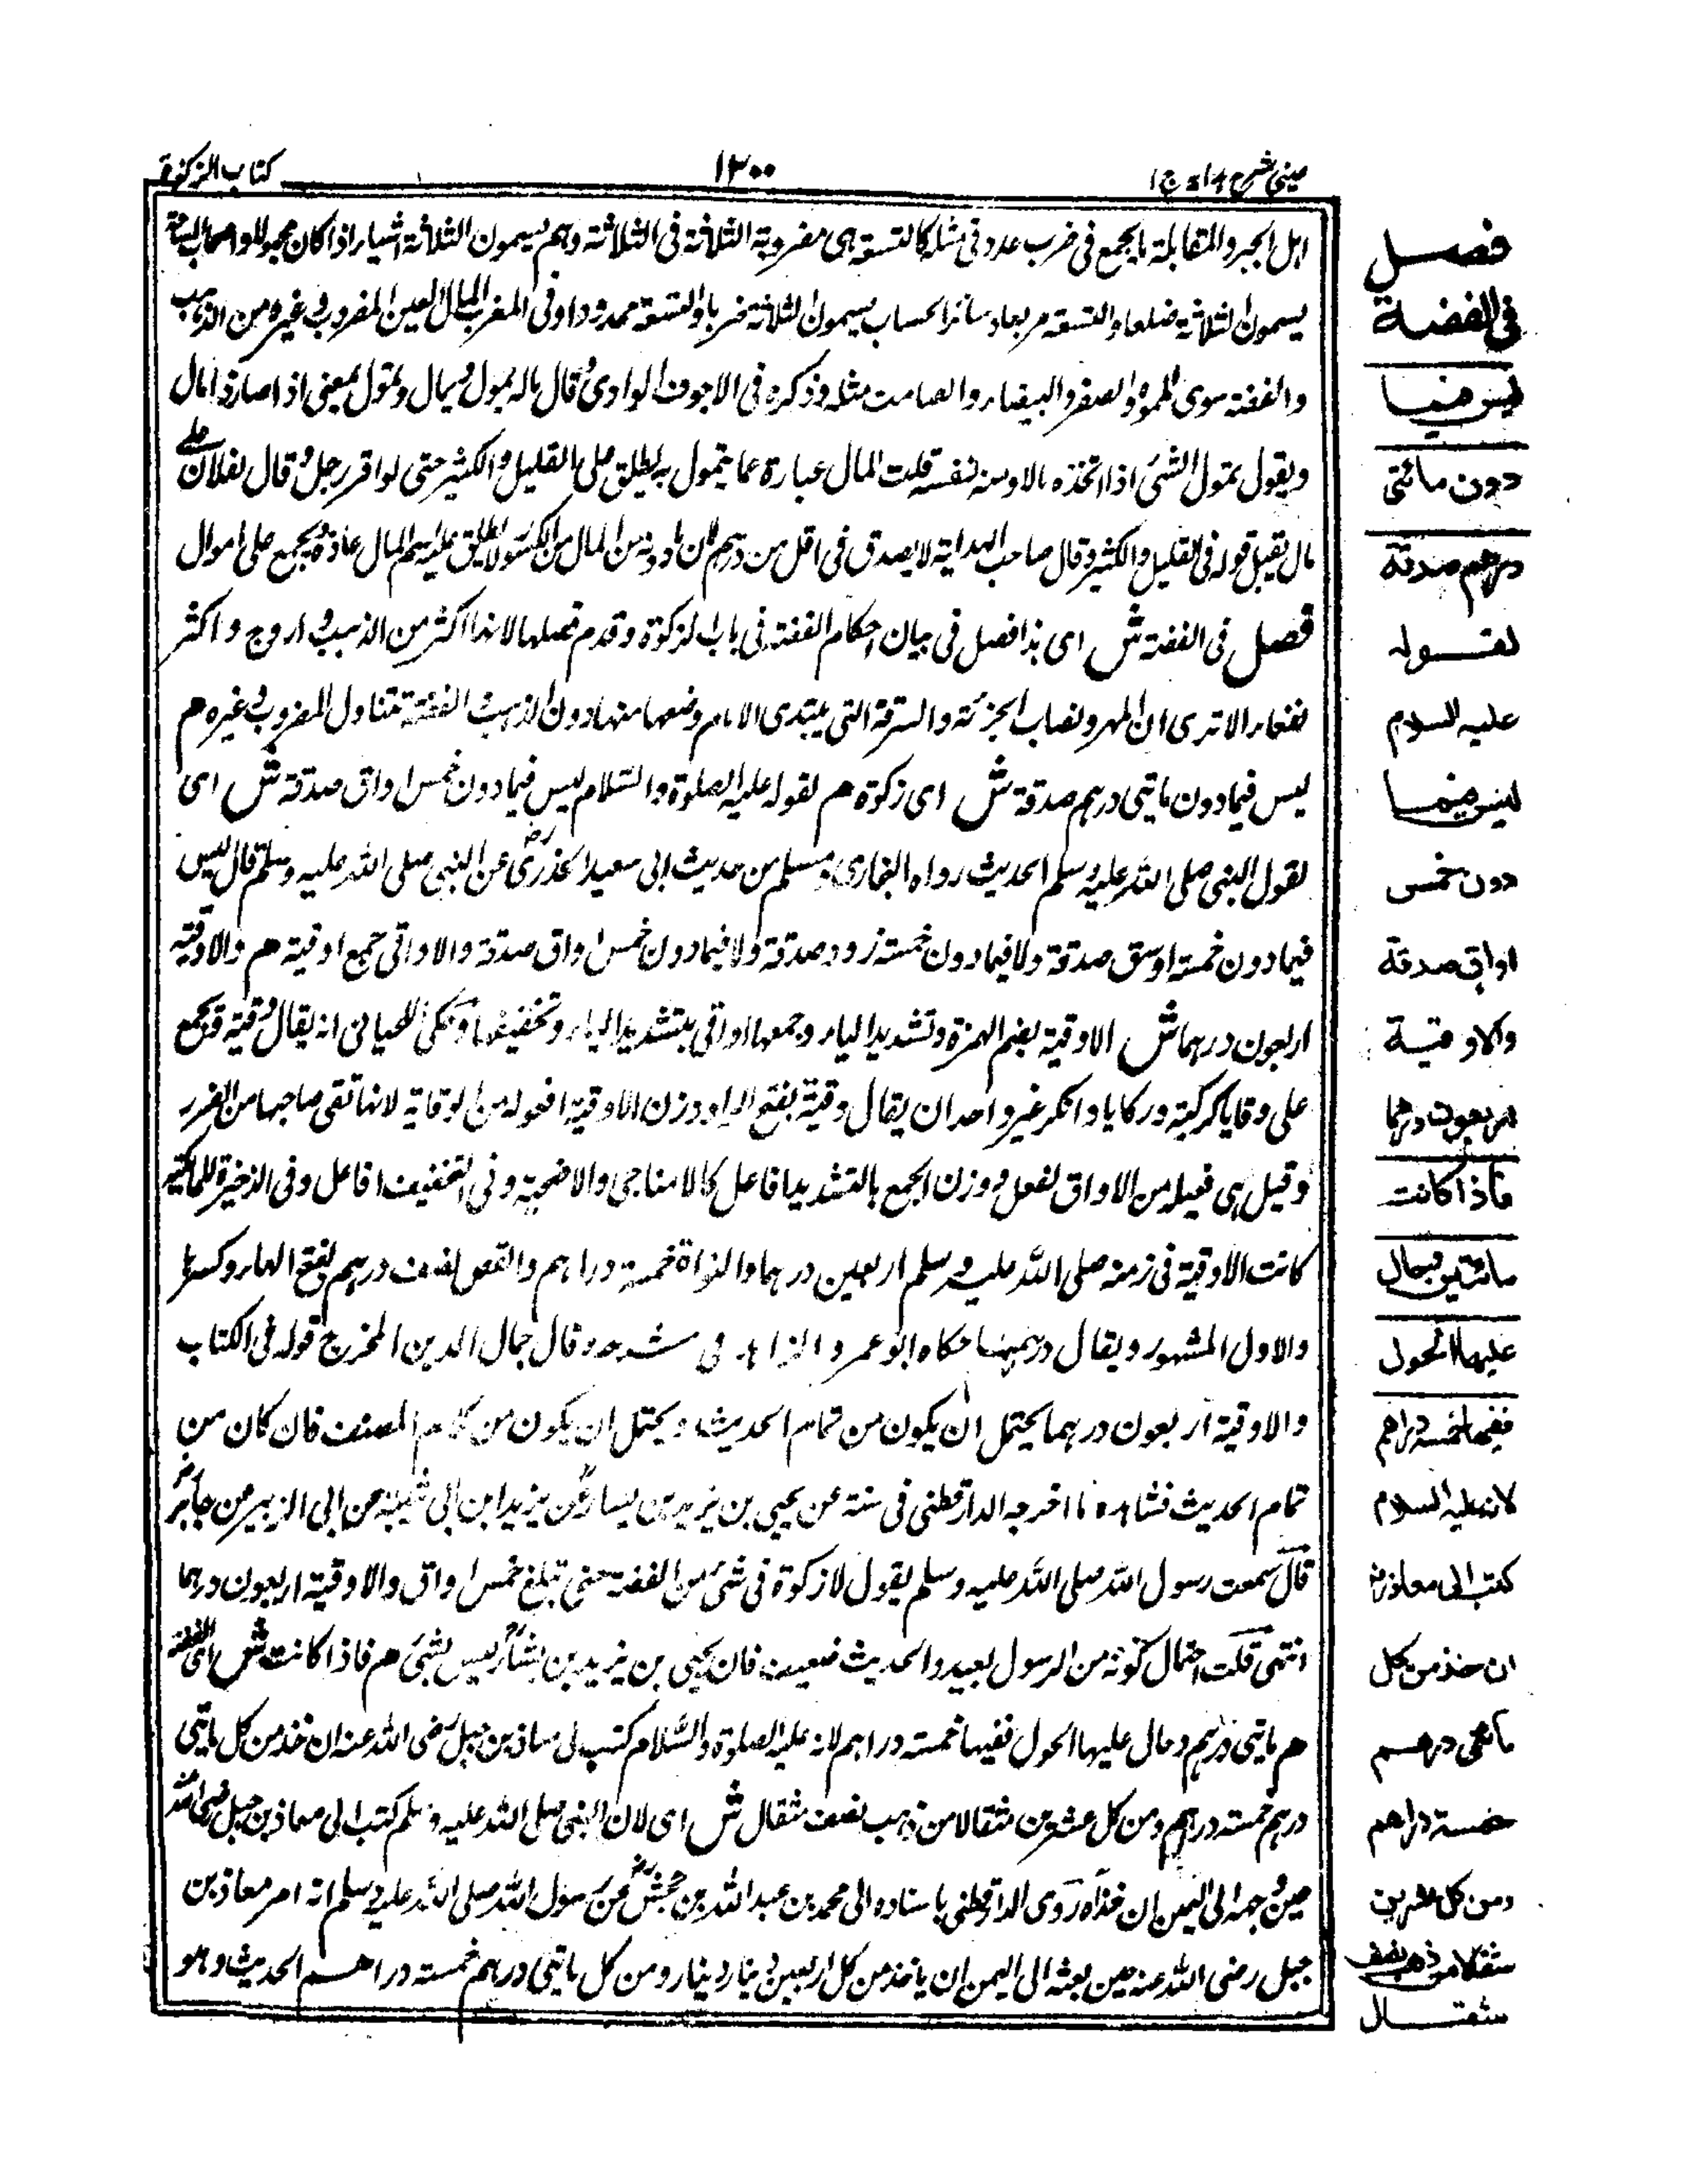 عينى شرح هداية ج ١
١٣٠٠
كتاب الزكوة
اهل الجبر والمقابلة ما يجمع فى ضرب عدد فى مثله كالتسعة هى مضروبة الثلاثة فى الثلاثة وهم يسمون الثلاثة اشياء اذا كان مجهولا واصحاب المساحة
يسمون الثلاثة ضلعا والتسعة مربعا وسائر الحساب يسمون الثلاثة ضربا والتسعة ممدودا وفى المغرب المال العين المضروب وغيره من الذهب
والفضة سوى المموه والصفر والبيضاء والصامت مثله وذكره فى الاجوف الواوى وقال ماله يمول ويمال وتمول بمعنى اذا صار ذا مال
ويقول تمول الشئ اذا اتخذه مالا وسنه لنفسه قلت المال عبارة عما يتمول به يطلق على القليل والكثير حتى لو اقر رجل وقال لفلان على
مال يقبل قوله فى القليل والكثير وقال صاحب الهداية لا يصدق فى اقل من درهم لان ما دونه من المال من الكسور لا يطلق عليه اسم المال عادة ويجمع على اموال
فصل فى الفضة ش اى هذا فصل فى بيان احكام الفضة فى باب الزكوة وقدم فصلها لانها اكثر من الذهب واروج واكثر
نفعا الا ترى ان المهر ونصاب الجزية والسرقة التى يبتدى الامام وضعها منها دون الذهب الفضة تتناول المضروب وغيره م
ليس فيما دون مايتى درهم صدقة ش اى زكوة م لقوله عليه الصلوة والسلام ليس فيما دون خمس اواق صدقة ش اى
لقول النبى صلى الله عليه وسلم الحديث رواه البخارى ومسلم من حديث ابى سعيد الخدرى رض عن النبى صلى الله عليه وسلم قال ليس
فيما دون خمسة اوسق صدقة ولا فيما دون خمسة زود صدقة ولا فيما دون خمس اواق صدقة والاواقى جمع اوقية م والاوقية
اربعون درهما ش الاوقية بضم الهمزة وتشديد الياء وجمعها اواقى بتشديد الياء وتخفيفها وحكى اللحيانى انه يقال وقية ويجمع
على وقايا كركية وركايا وانكر غير واحد ان يقال وقية بفتح الواو ووزن الاوقية افعوله من الوقاية لانها تقى صاحبها من الضرر
وقيل هى فعيلة من الاواق لفعل ووزن الجمع بالتشديد افاعل كالاضاحى والاضحية وفى التخفيف افاعل وفى الذخيرة للمالكية
كانت الاوقية فى زمنه صلى الله عليه وسلم اربعين درهما والنواة خمسة دراهم والنص نصف درهم بفتح الهاء وكسرها
والاول المشهور ويقال درهم حكاه ابو عمرو الزاهد فى شرحه وقال جمال الدين المخرج قوله فى الكتاب
والاوقية اربعون درهما يحتمل ان يكون من تمام الحديث ويحتمل ان يكون من كلام المصنف فان كان من
تمام الحديث فشاهده ما اخرجه الدارقطنى فى سنة عن يحيى بن يزيد بن يسار عن يزيد ابن ابى عن ابى الزبير من جابر رض
قال سمعت رسول الله صلى الله عليه وسلم يقول لا زكوة فى شئ من الفضة حتى تبلغ خمس اواق والاوقية اربعون درهما
انتهى قلت احتمال كونه من الرسول بعيد والحديث ضعيف فان يحيى بن يزيد بن بشار ليس بشئ م فاذا كانت ش اى الفضة
م مايتى درهم وحال عليها الحول ففيها خمسة دراهم لانه عليه الصلوة والسلام كتب الى معاذ بن جبل رضى الله عنه ان خذ من كل مايتى
درهم خمسة دراهم ومن كل عشرين مثقالا من ذهب نصف مثقال ش اى لان النبى صلى الله عليه وسلم كتب الى معاذ بن جبل رضى الله
حين وجهه الى اليمن ان خذ روى الدارقطنى باسناده الى محمد بن عبد الله بن جحش رض عن رسول الله صلى الله عليه وسلم انه امر معاذ بن
جبل رضى الله عنه حين بعثه الى اليمن ان ياخذ من كل اربعين دينار دينار ومن كل مايتى درهم خمسة دراهم الحديث وهو
فصل
فى الفضة
ليس فيما
دون مائتى
درهم صدقة
لقوله
عليه السلام
ليس فيما
دون خمس
اواق صدقة
والاوقية
اربعون درهما
فاذا كانت
مائتين وحال
عليها الحول
ففيها خمسة دراهم
لانه عليه السلام
كتب الى معاذ رض
ان خذ من كل
مائتى درهم
خمسة دراهم
ومن كل عشرين
مثقالا من ذهب نصف
مثقال